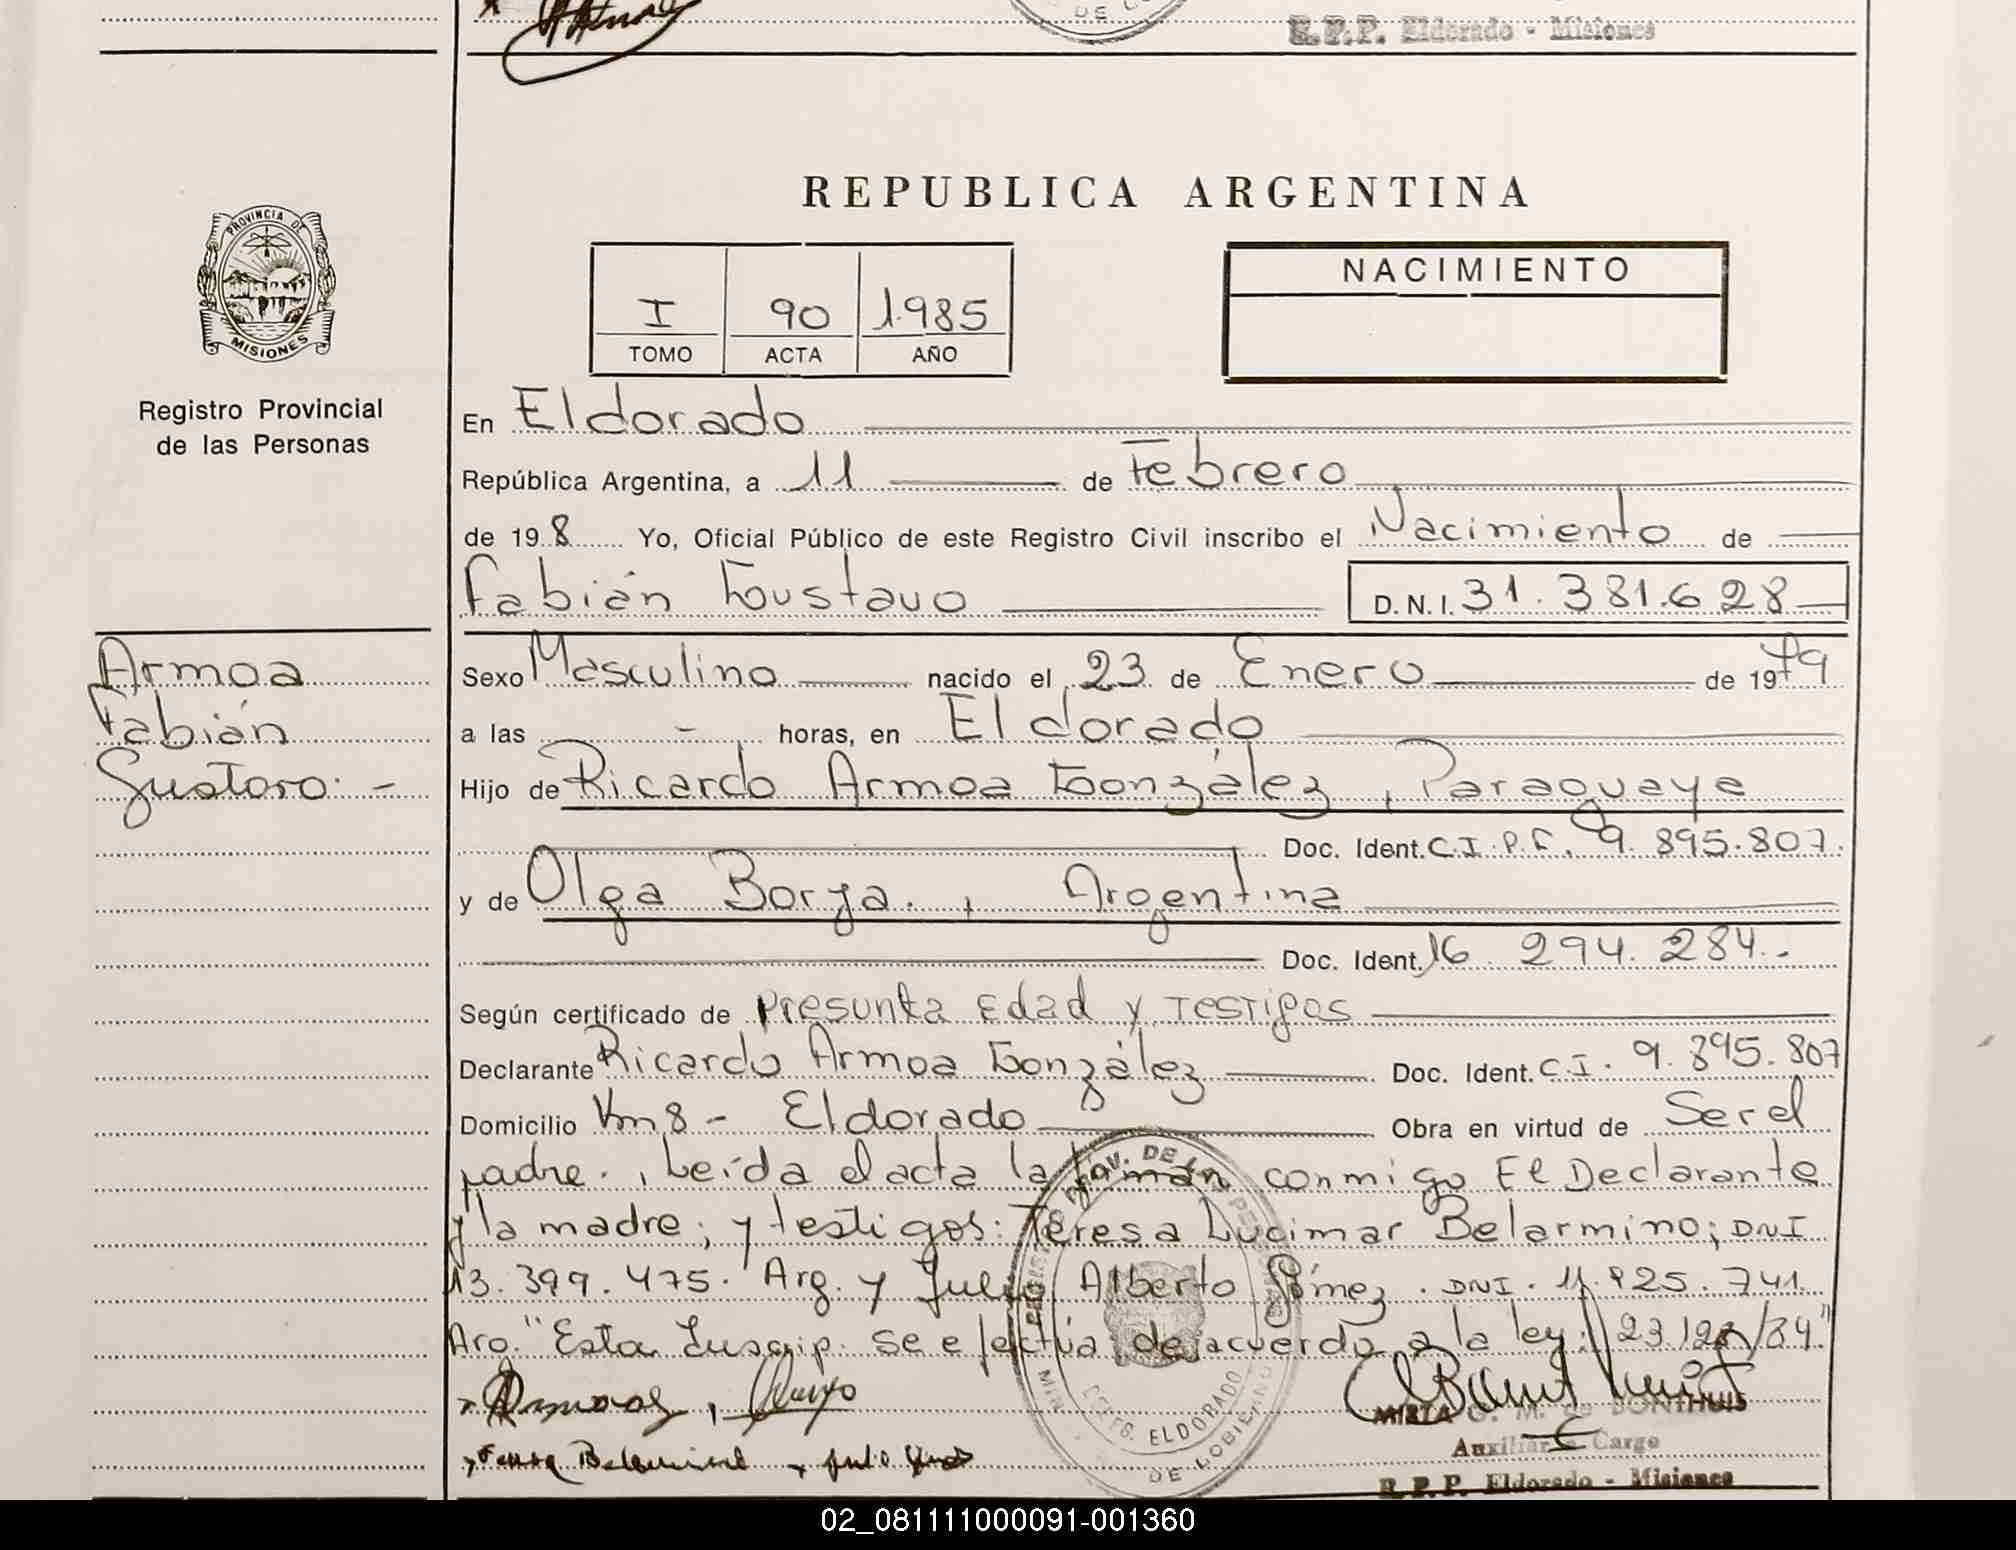 DE
R.P.P. Eldorado - Misiones
REPUBLICA ARGENTINA
PROVINCIA DE
MISIONES
I 90 1985
TOMO ACTA AÑO
NACIMIENTO
Registro Provincial
de las Personas
En Eldorado
República Argentina, a 11 de Febrero
de 198 Yo, Oficial Público de este Registro Civil inscribo el Nacimiento de
Fabián Gustavo D.N.I. 31.381.628
Armoa
Fabián
Gustavo.-
Sexo Masculino nacido el 23 de Enero de 1979
a las - horas, en Eldorado
Hijo de Ricardo Armoa González, Paraguaya
Doc. Ident. C.I.P.F. 9.895.807.
y de Olga Borja, Argentina
Doc. Ident. 16.294.284.-
Según certificado de Presunta Edad y Testigos
Declarante Ricardo Armoa González Doc. Ident. C.I. 9.895.807
Domicilio Km 8 - Eldorado Obra en virtud de Ser el
padre., Leída el acta la firman conmigo El Declarante
y la madre; y testigos: Teresa Lucimar Belarmino; DNI
13.399.475. Arg. y Julio Alberto Gómez. DNI. 11.925.741.
Arg. "Esta Inscrip. se efectúa de acuerdo a la ley: 23.128/84"
MIRTA G. M. de BONTHUIS
Auxiliar a Cargo
R.P.P. Eldorado - Misiones
ELDORADO
DE GOBIERNO
02_081111000091-001360